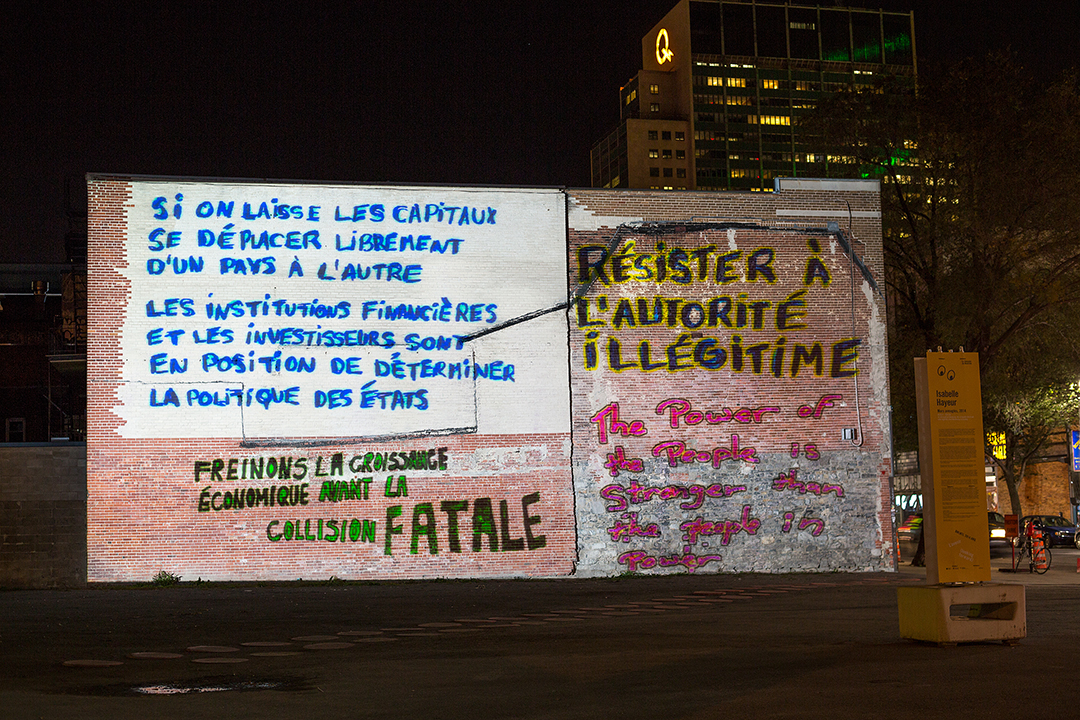 SI ON LAISSE LES CAPITAUX
SE DÉPLACER LIBREMENT
D'UN PAYS À L'AUTRE
LES INSTITUTIONS FINANCIÈRES
ET LES INVESTISSEURS SONT
EN POSITION DE DÉTERMINER
LA POLITIQUE DES ÉTATS
FREINONS LA CROISSANCE
ÉCONOMIQUE AVANT LA
COLLISION FATALE
RÉSISTER À
L'AUTORITÉ
ILLÉGITIME
The Power of
the People is
Stronger than
the people in
Power
Q
Isabelle
Hayeur